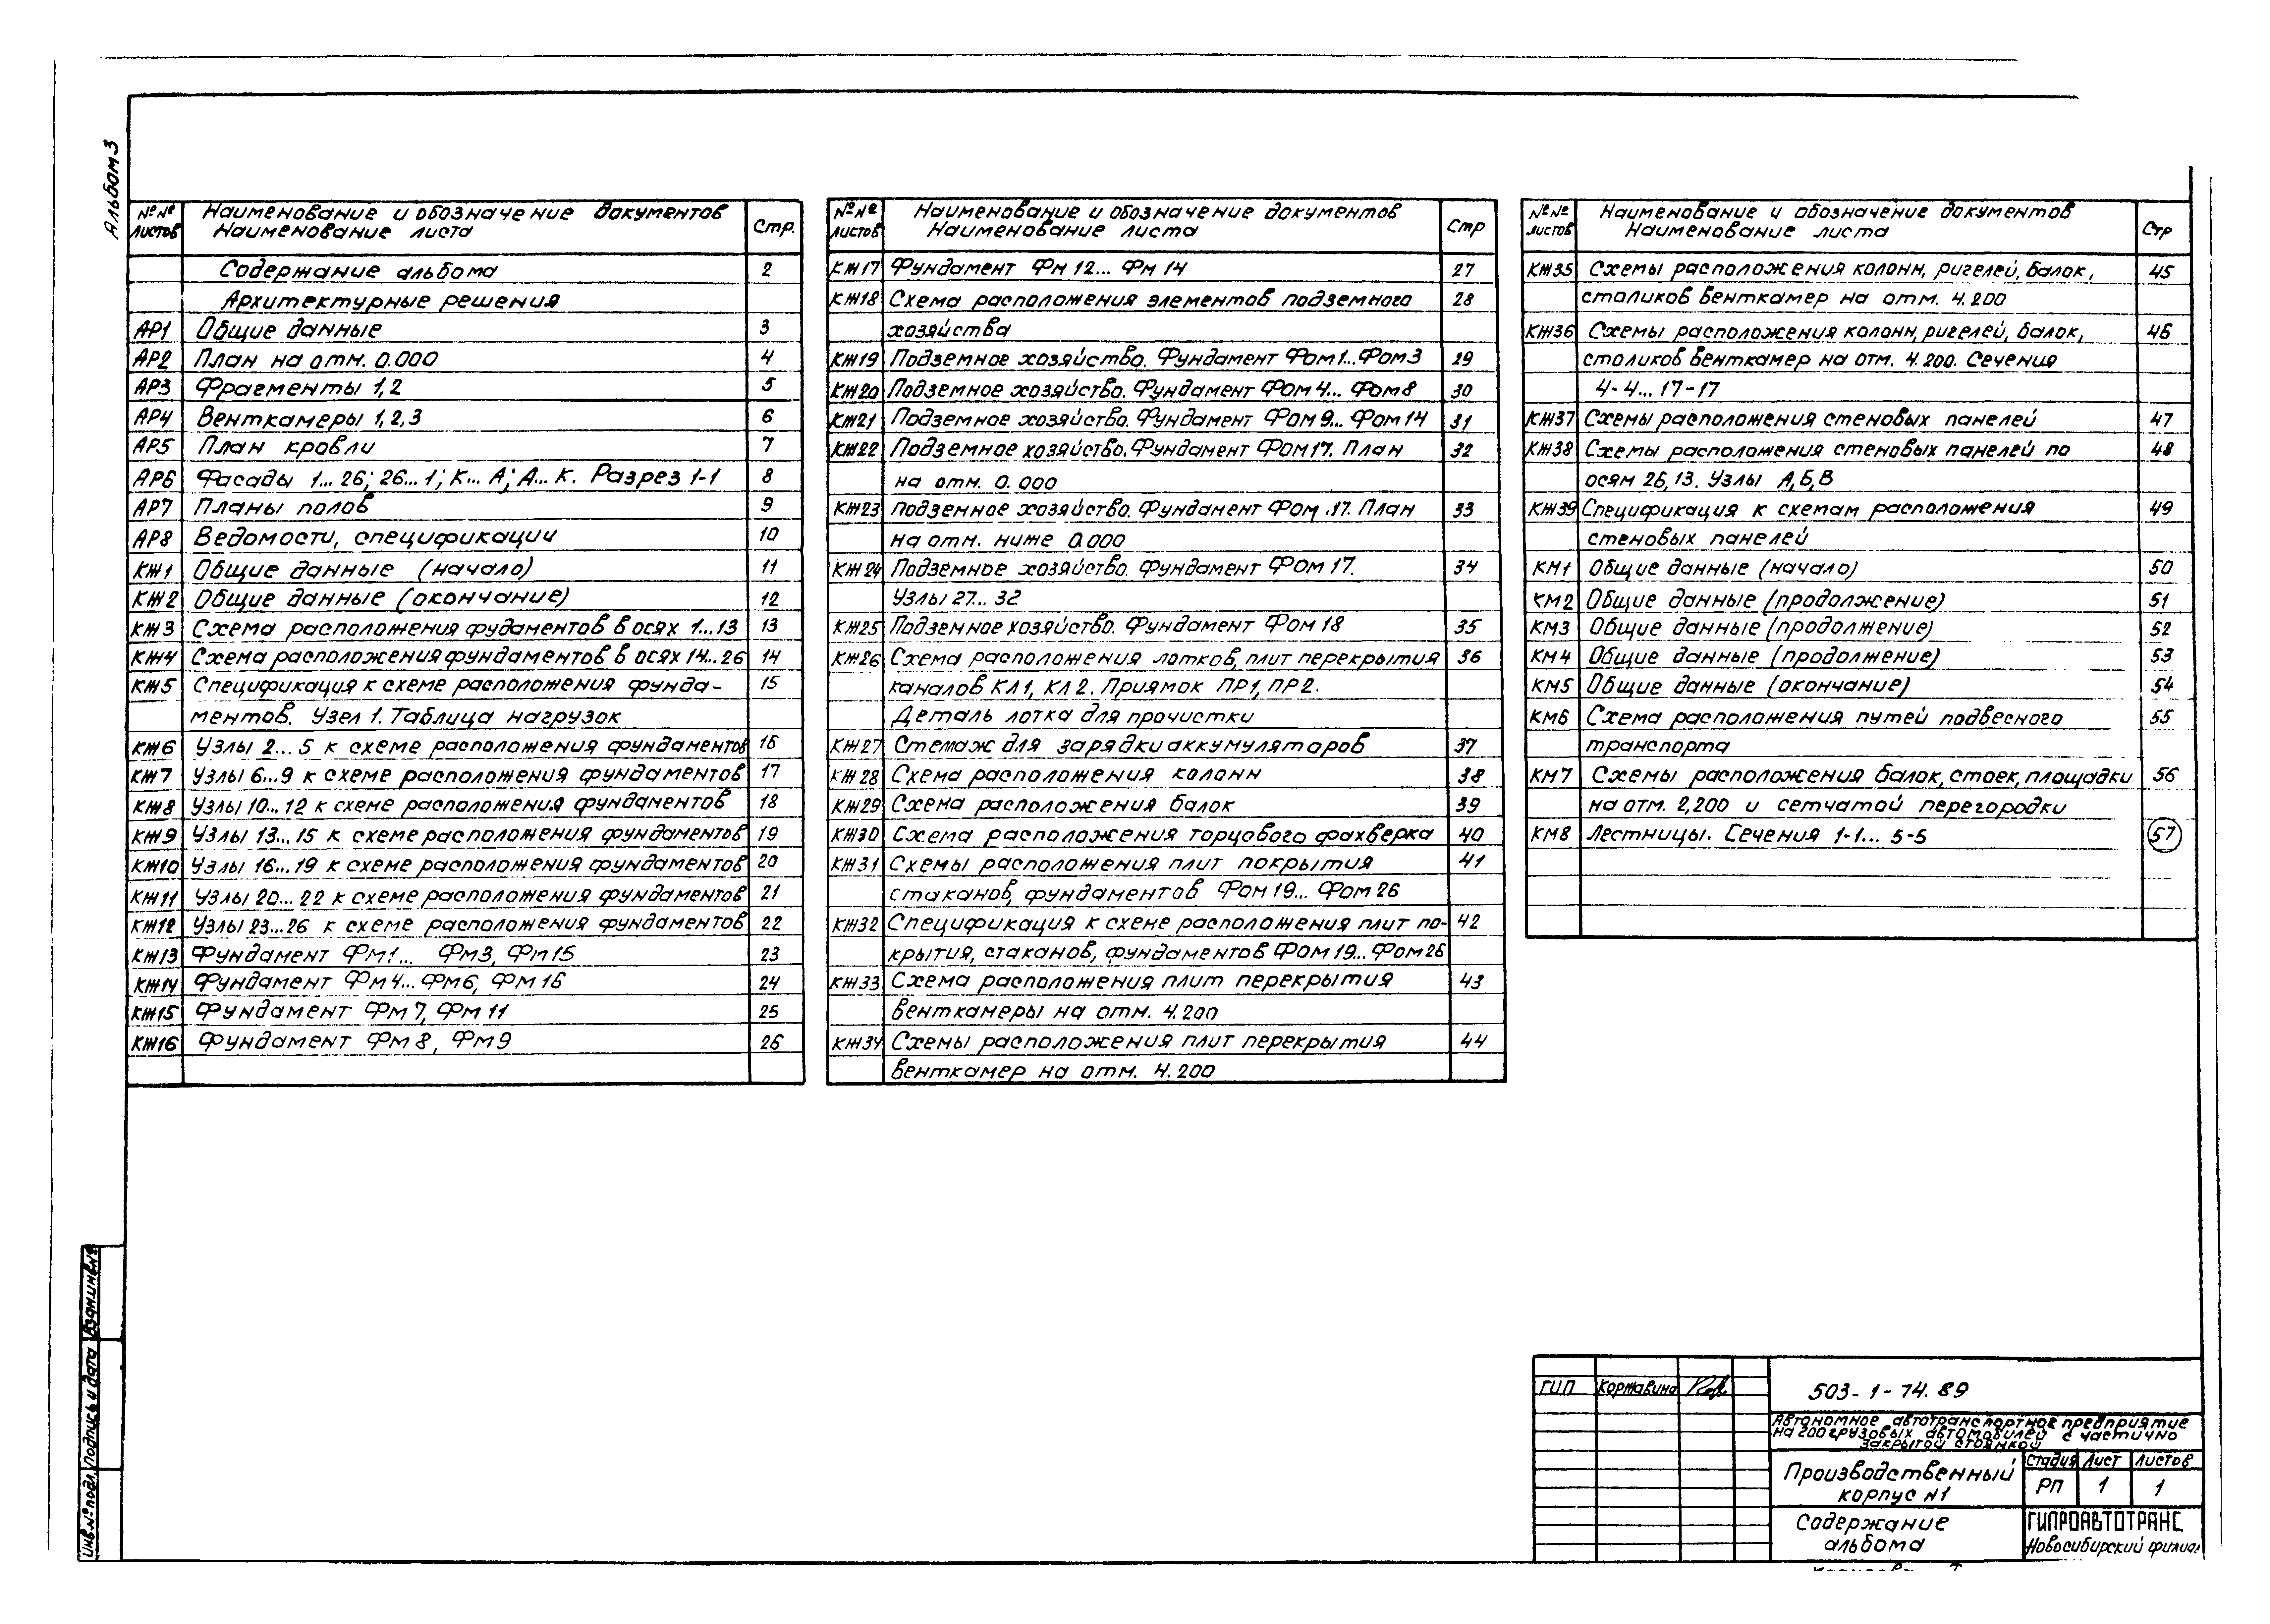 Альбом 3
№№ листов Наименование и обозначение документов Наименование листа Стр.
Содержание альбома 2
Архитектурные решения
АР1 Общие данные 3
АР2 План на отм. 0.000 4
АР3 Фрагменты 1,2 5
АР4 Венткамеры 1,2,3 6
АР5 План кровли 7
АР6 Фасады 1...26; 26...1; К...А; А...К. Разрез 1-1 8
АР7 Планы полов 9
АР8 Ведомости, спецификации 10
КЖ1 Общие данные (начало) 11
КЖ2 Общие данные (окончание) 12
КЖ3 Схема расположения фудаментов в осях 1...13 13
КЖ4 Схема расположения фундаментов в осях 14...26 14
КЖ5 Спецификация к схеме расположения фунда- 15
ментов. Узел 1. Таблица нагрузок
КЖ6 Узлы 2...5 к схеме расположения фундаментов 16
КЖ7 Узлы 6...9 к схеме расположения фундаментов 17
КЖ8 Узлы 10...12 к схеме расположения фундаментов 18
КЖ9 Узлы 13...15 к схеме расположения фундаментов 19
КЖ10 Узлы 16...19 к схеме расположения фундаментов 20
КЖ11 Узлы 20...22 к схеме расположения фундаментов 21
КЖ12 Узлы 23...26 к схеме расположения фундаментов 22
КЖ13 Фундамент Фм1... Фм3, Фм15 23
КЖ14 Фундамент Фм4...Фм6, Фм16 24
КЖ15 Фундамент Фм7, Фм11 25
КЖ16 Фундамент Фм8, Фм9 26
№№ листов Наименование и обозначение документов Наименование листа Стр
КЖ17 Фундамент Фм12... Фм14 27
КЖ18 Схема расположения элементов подземного 28
хозяйства
КЖ19 Подземное хозяйство. Фундамент Фом1...Фом3 29
КЖ20 Подземное хозяйство. Фундамент Фом4... Фом8 30
КЖ21 Подземное хозяйство. Фундамент Фом9... Фом14 31
КЖ22 Подземное хозяйство. Фундамент Фом17. План 32
на отм. 0.000
КЖ23 подземное хозяйство. Фундамент Фом.17. План 33
на отм. ниже 0.000
КЖ24 Подземное хозяйство. Фундамент Фом17. 34
Узлы 27...32
КЖ25 Подземное хозяйство. Фундамент Фом18 35
КЖ26 Схема расположения лотков, плит перекрытия 36
каналов КЛ1, КЛ2. Приямок ПР1, ПР2.
Деталь лотка для прочистки
КЖ27 Стемаж для зарядки аккумуляторов 37
КЖ28 Схема расположения колонн 38
КЖ29 Схема расположения балок 39
КЖ30 Схема расположения торцового фахверка 40
КЖ31 Схемы расположения плит покрытия 41
стаканов, фундаментов Фом19... Фом26
КЖ32 Спецификация к схеме расположения плит по- 42
крытия, стаканов, фундаментов Фом19... Фом26
КЖ33 Схема расположения плит перекрытия 43
венткамеры на отм. 4.200
КЖ34 Схемы расположения плит перекрытия 44
венткамер на отм. 4.200
№№ листов Наименование и обозначение документов Наименование листа Стр
КЖ35 Схемы расположения колонн, ригелей, балок, 45
столиков венткамер на отм. 4.200
КЖ36 Схемы расположения колонн, ригелей, балок, 46
столиков венткамер на отм. 4.200. Сечения
4-4... 17-17
КЖ37 Схемы расположения стеновых панелей 47
КЖ38 Схемы расположения стеновых панелей по 48
осям 26,13. Узлы А,Б,В
КЖ39 Спецификация к схемам расположения 49
стеновых панелей
КМ1 Общие данные (начало) 50
КМ2 Общие данные (продолжение) 51
КМ3 Общие данные (продолжение) 52
КМ4 Общие данные (продолжение) 53
КМ5 Общие данные (окончание) 54
КМ6 Схема расположения путей подвесного 55
транспорта
КМ7 Схемы расположения балок, стоек, площадки 56
на отм. 2,200 и сетчатой перегородки
КМ8 Лестницы. Сечения 1-1... 5-5 57
Инв.№ подл. Подпись и дата Взам.инв.№
ГИП Коржавина
503-1-74.89
Автономное автотранспортное предприятие
на 200 грузовых автомобилей с частично
закрытой стоянкой
Производственный корпус N1
Стадия Лист Листов
РП 1 1
Содержание альбома
ГИПРОАВТОТРАНС
Новосибирский филиал